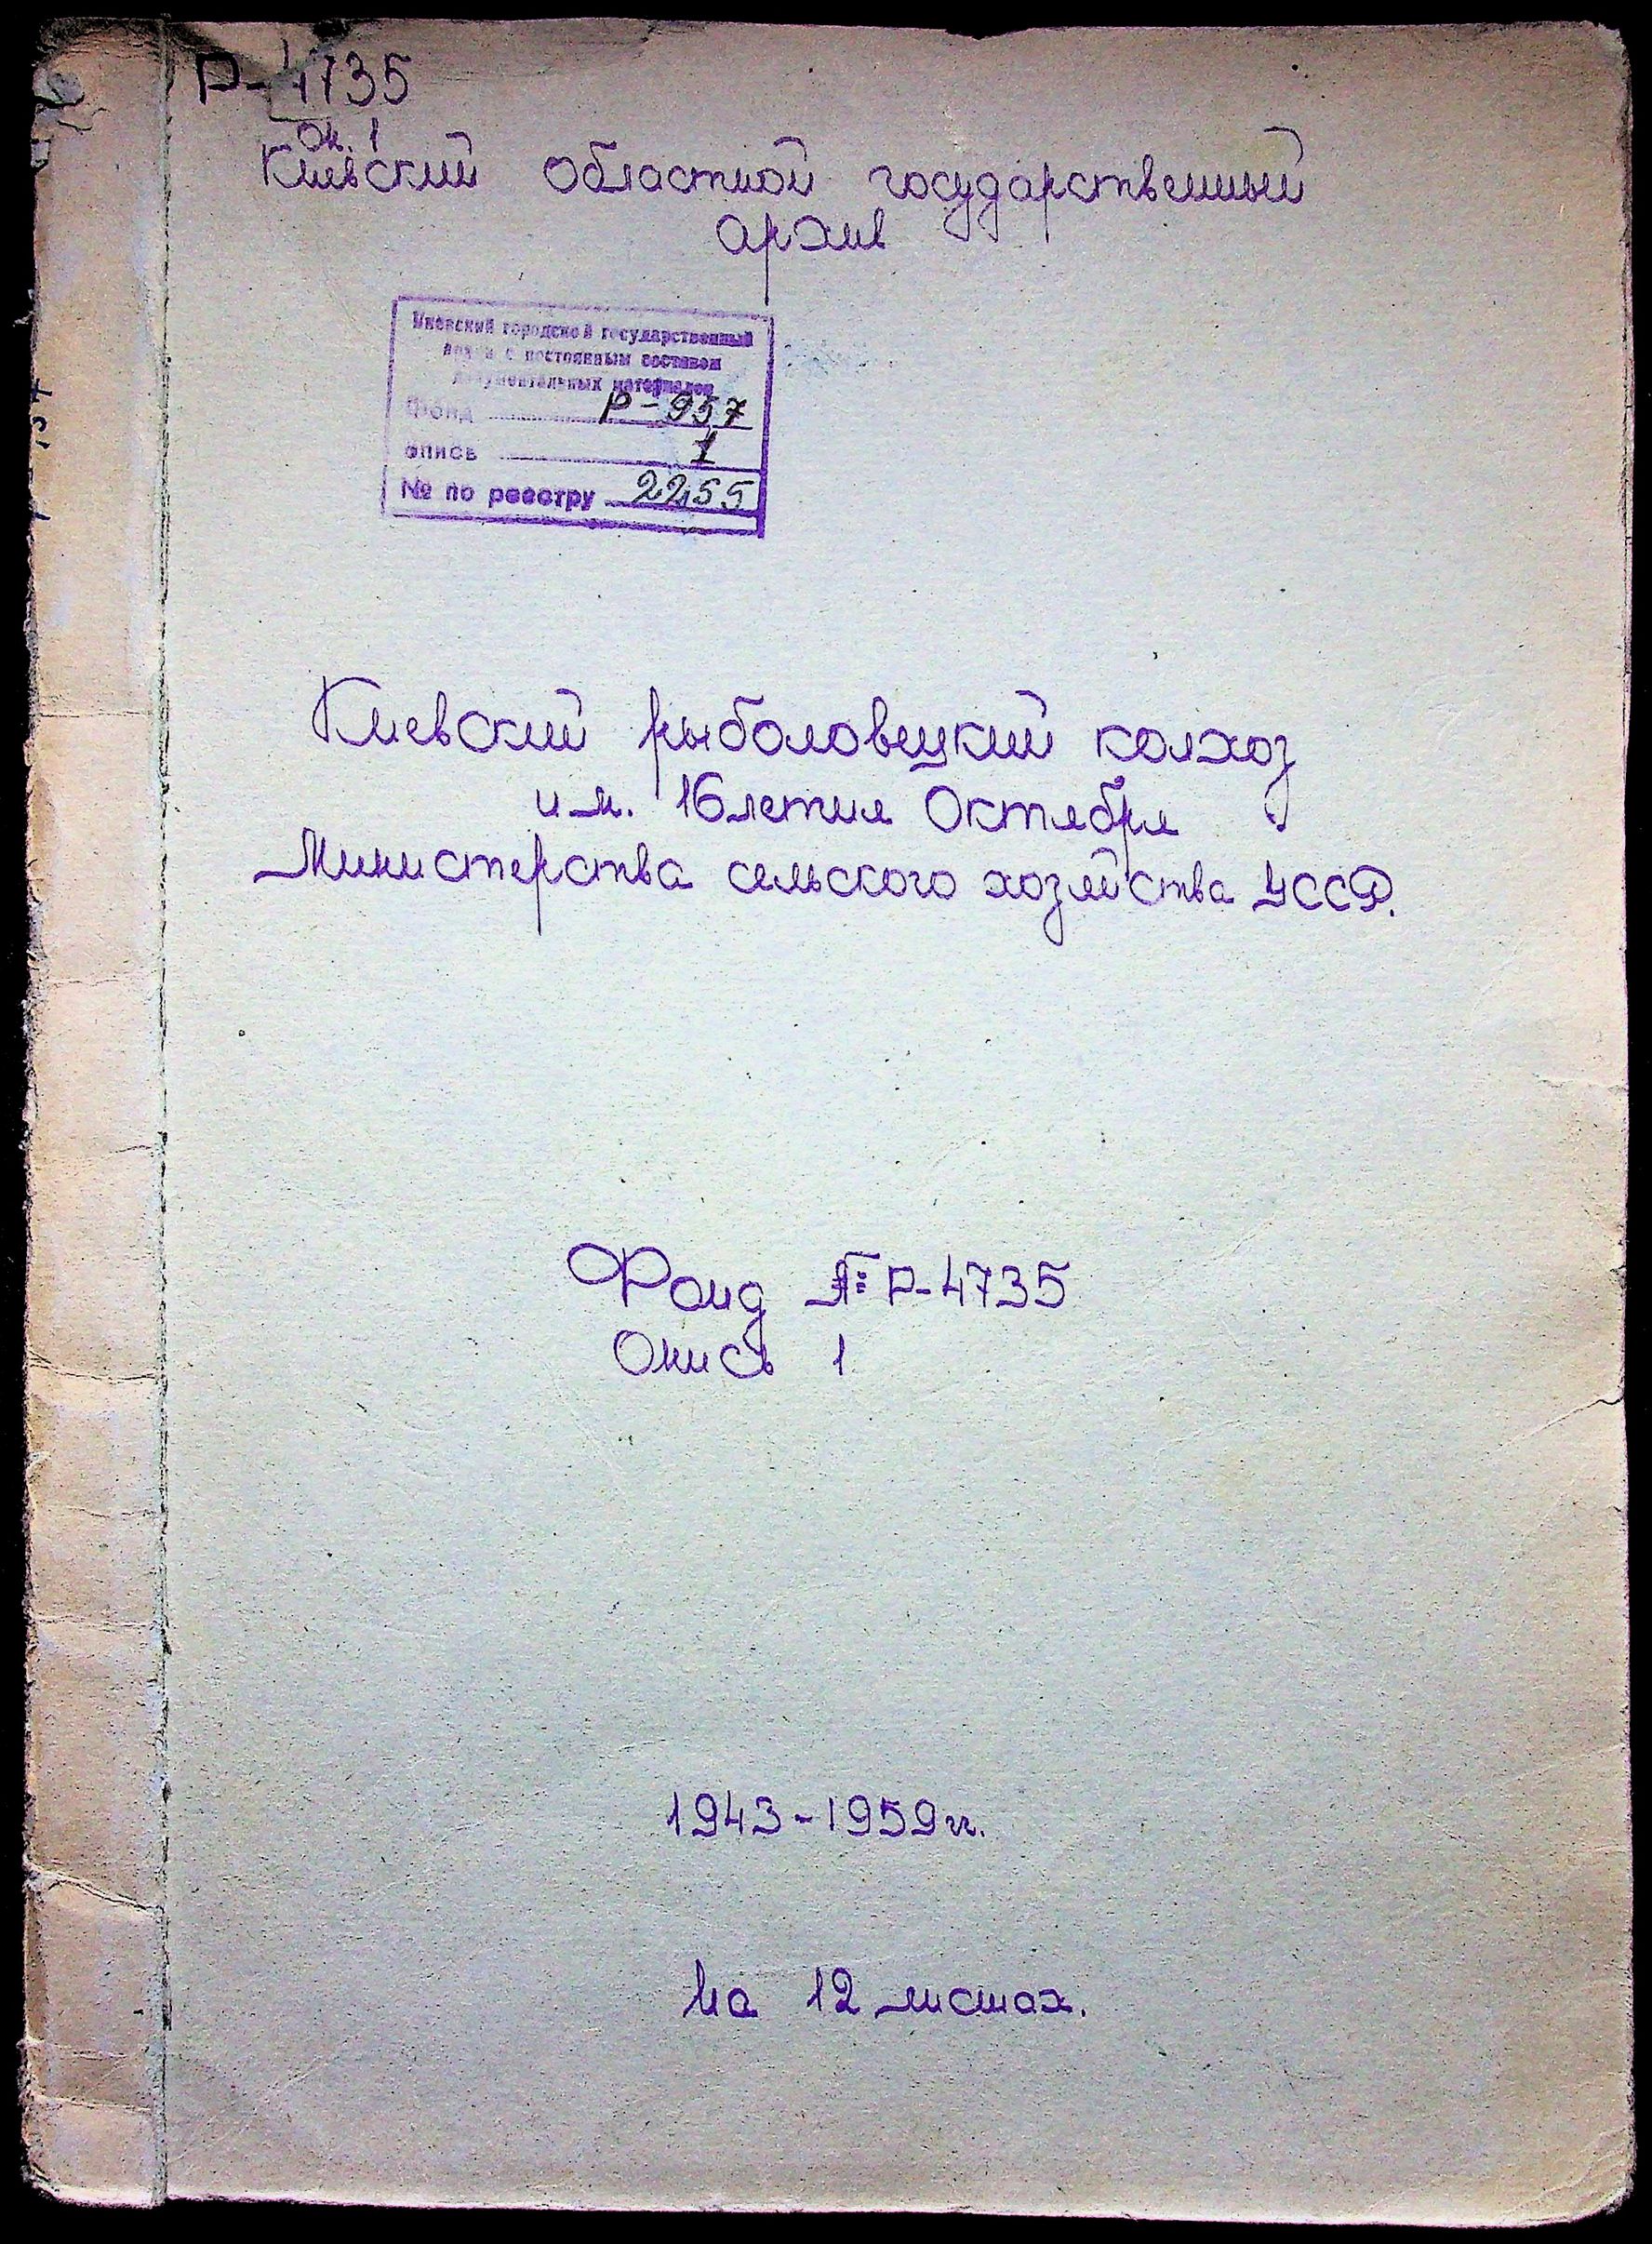 Р-4735
Оп. 1
Киевский областной государственный
архив
Киевский городской государственный
архив с постоянным составом
документальных материалов
Фонд Р-957
опись 1
№ по реестру 2255
Киевский рыболовецкий колхоз
им. 16летия Октября
Министерства сельского хозяйства УССР.
Фонд № Р-4735
Опись 1
1943-1959гг.
На 12 листах.